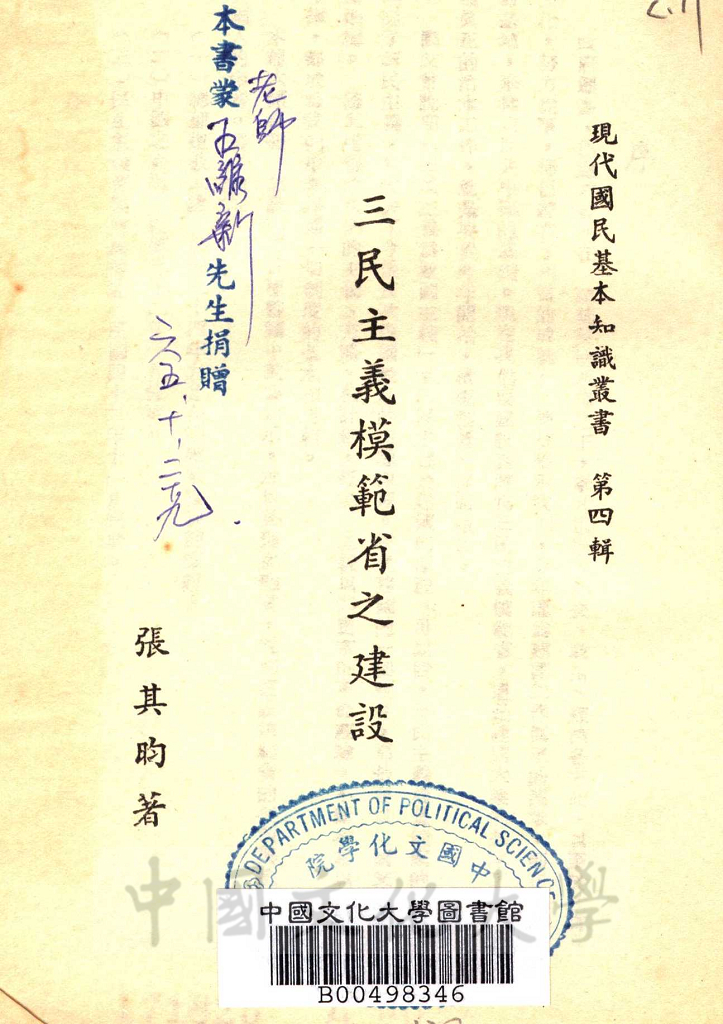 現代國民基本知識叢書　第四輯
三民主義模範省之建設
張其昀著
本書蒙
老師
先生捐贈
六五、十、二十九
DEPARTMENT OF POLITICAL SCIENCE
中國文化學院
中國文化大學
中國文化大學圖書館
B00498346